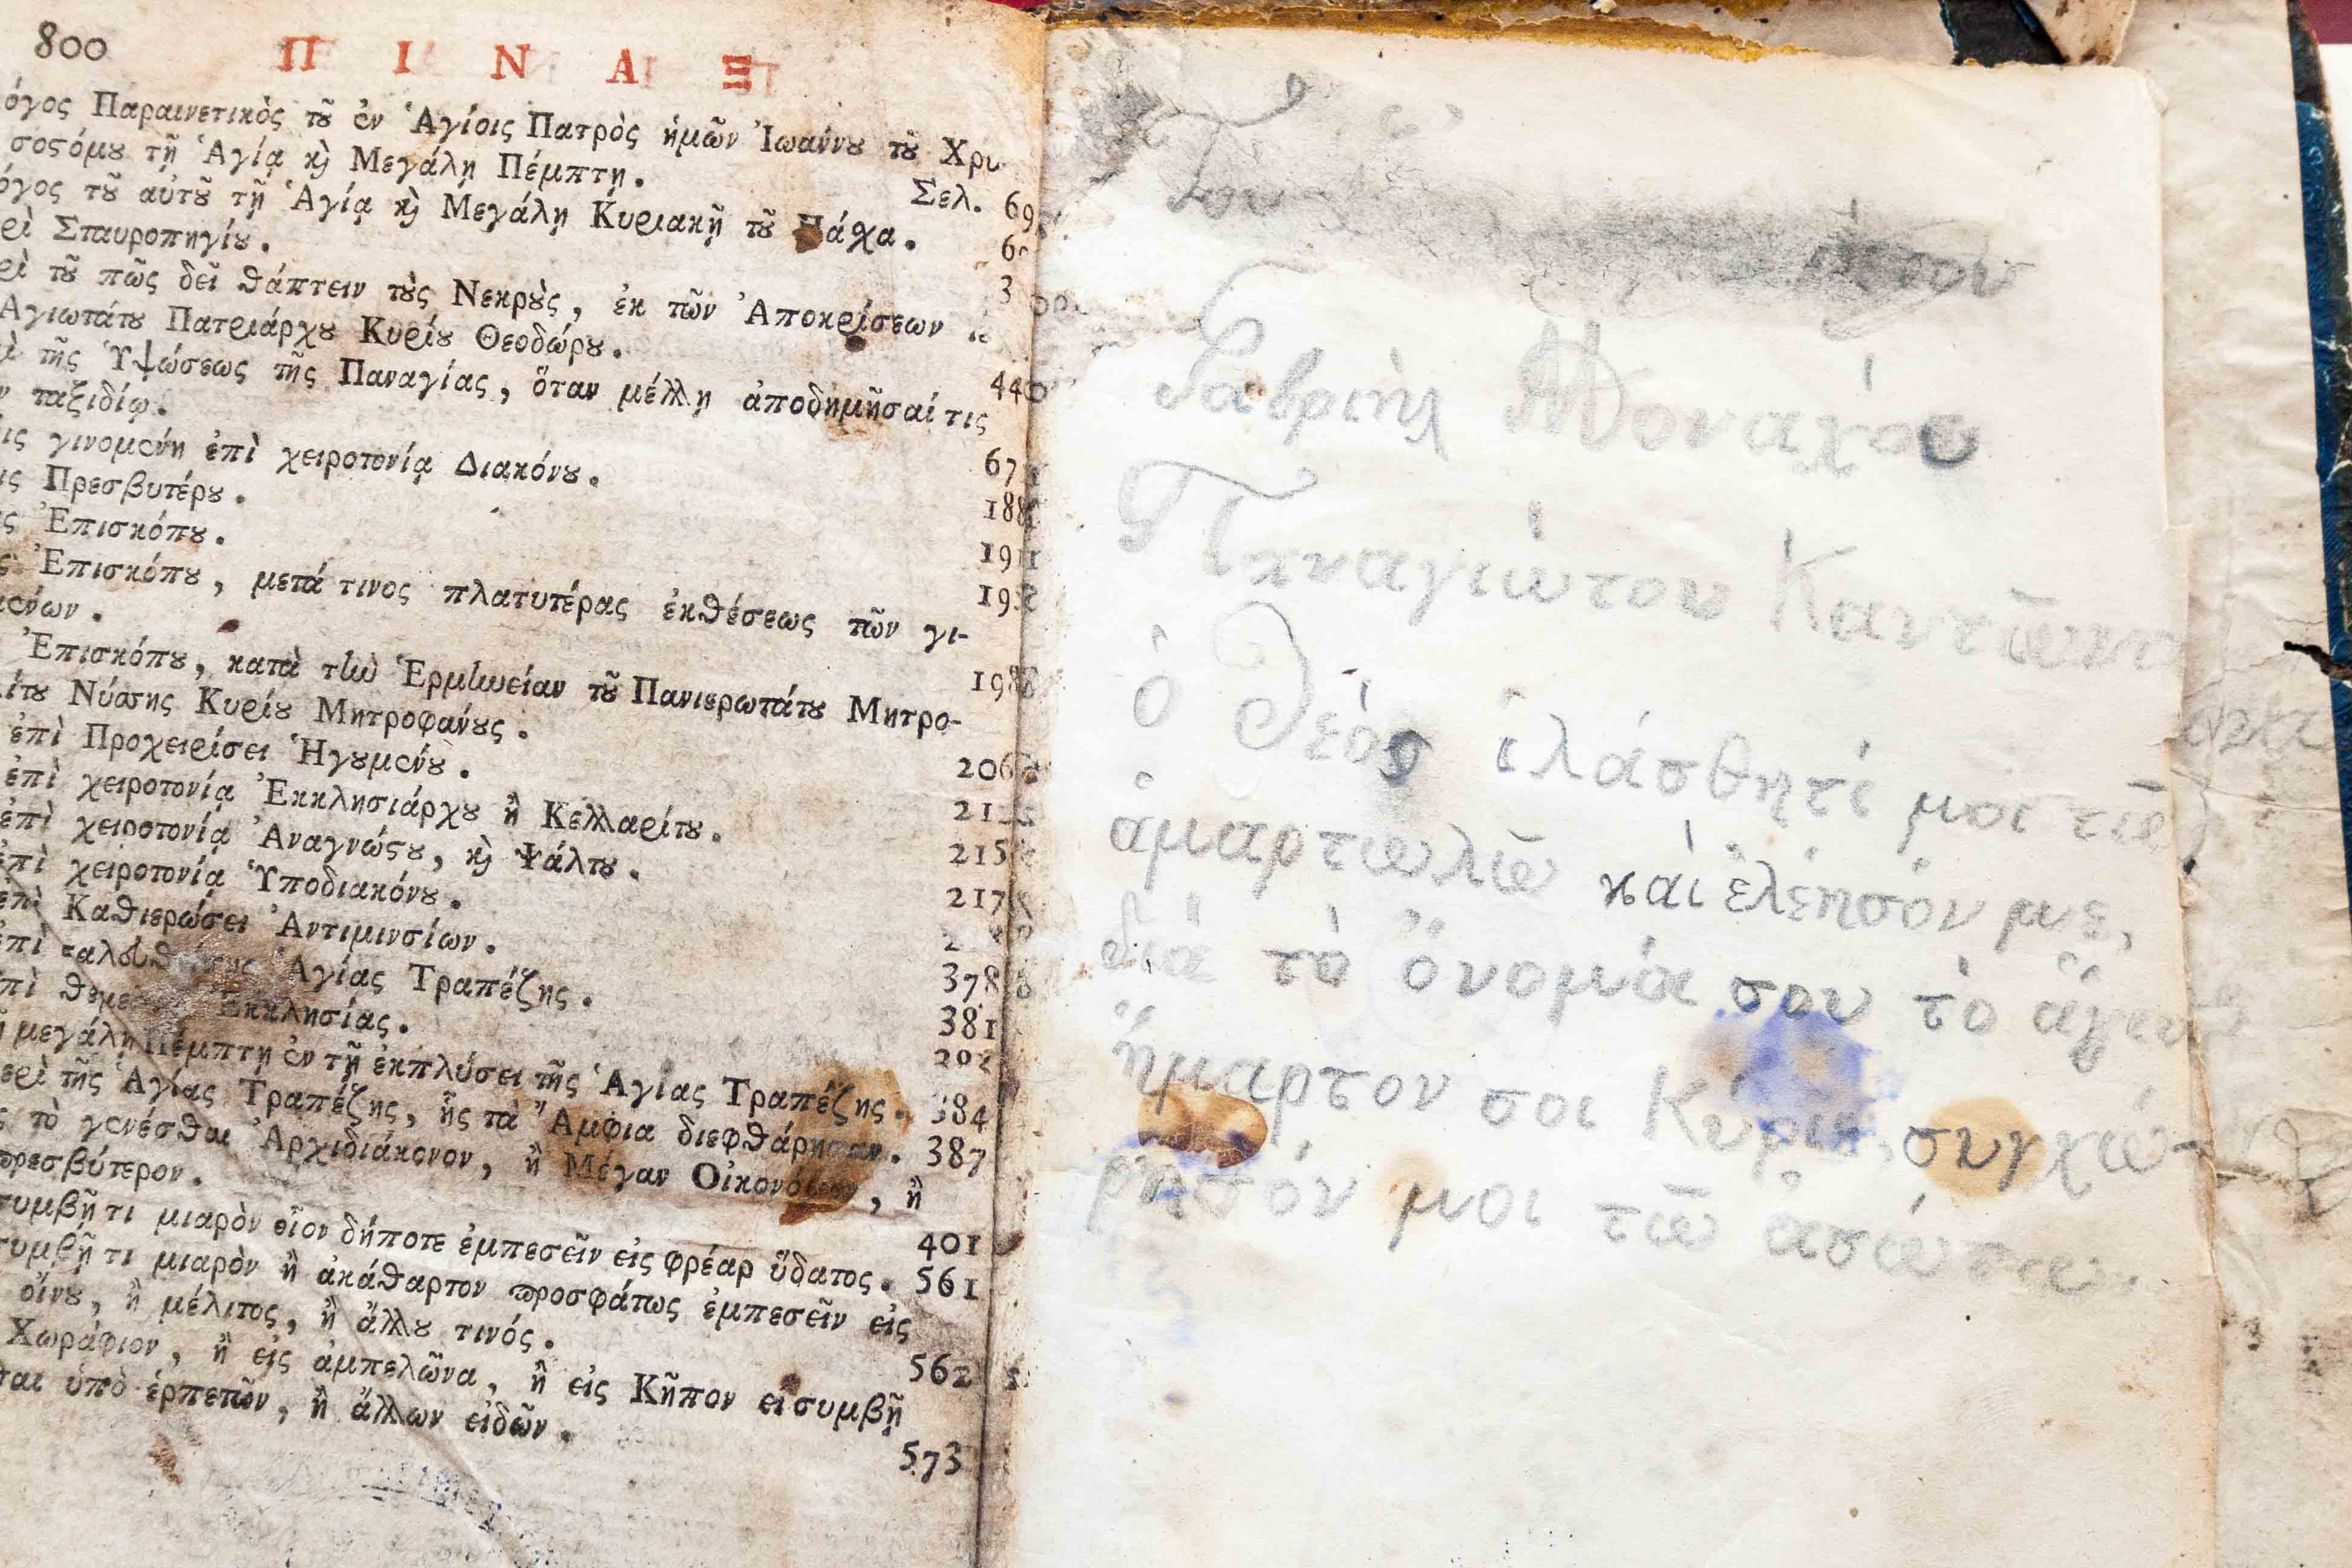 800
Π Ι Ν Α Ξ
όγος Παραινετικὸς τȣ̃ ἐν Ἁγίοις Πατρὸς ἡμῶν Ἰωάννȣ τȣ̃ Χρυ
σοϛόμȣ τῇ Ἁγίᾳ ϗ Μεγάλῃ Πέμπτῃ. Σελ. 69
όγος τȣ̃ αὐτȣ̃ τῇ Ἁγίᾳ ϗ Μεγάλῃ Κυριακῇ τȣ̃ Πάσχα.
ρὶ Σταυροπηγίȣ. 3
ρὶ τȣ̃ πῶς δεῖ θάπτειν τȣ̀ς Νεκρȣ̀ς, ἐκ τῶν Ἀποκρίσεων
Ἁγιωτάτȣ Πατριάρχȣ Κυρίȣ Θεοδώρȣ. 440
ὶ τῆς Ὑψώσεως τῆς Παναγίας, ὅταν μέλλῃ ἀποδημῆσαί τις
ν ταξιδίῳ. 671
ις γινομένη ἐπὶ χειροτονίᾳ Διακόνȣ. 188
ις Πρεσβυτέρȣ. 191
ς Ἐπισκόπȣ. 192
ς Ἐπισκόπȣ, μετά τινος πλατυτέρας ἐκθέσεως τῶν γι-
μένων. 198
Ἐπισκόπȣ, κατὰ τὴν Ἑρμηνείαν τȣ̃ Πανιερωτάτȣ Μητρο-
ίτȣ Νύσσης Κυρίȣ Μητροφάνȣς. 206
ἐπὶ Προχειρίσει Ἡγȣμένȣ. 21
ἐπὶ χειροτονίᾳ Ἐκκλησιάρχȣ ἢ Κελλαρίτȣ. 215
ἐπὶ χειροτονίᾳ Ἀναγνώϛȣ, ϗ Ψάλτȣ. 217
ἐπὶ χειροτονίᾳ Ὑποδιακόνȣ.
ἐπὶ Καθιερώσει Ἀντιμινσίων. 378
ἐπὶ Ἁγίας Τραπέζης. 381
πὶ Ἐκκλησίας. 202
ῇ μεγάλῃ Πέμπτῃ ἐν τῇ ἐκπλύσει τῆς Ἁγίας Τραπέζης. 384
ερὶ τῆς Ἁγίας Τραπέζης, ἧς τὰ Ἄμφια διεφθάρησαν. 387
ς τὸ γενέσθαι Ἀρχιδιάκονον, ἢ Μέγαν Οἰκονόμον, ἢ
πρεσβύτερον. 401
συμβῇ τι μιαρὸν οἷον δήποτε ἐμπεσεῖν εἰς φρέαρ ὕδατος. 561
συμβῇ τι μιαρὸν ἢ ἀκάθαρτον προσφάτως ἐμπεσεῖν εἰς
οἴνȣ, ἢ μέλιτος, ἢ ἄλλȣ τινός. 562
Χωράφιον, ἢ εἰς ἀμπελῶνα, ἢ εἰς Κῆπον εἰ συμβῇ
ται ὑπὸ ἑρπετῶν, ἢ ἄλλων εἰδῶν. 573
Του
Γαβριὴλ Μοναχού
Παναγιώτου
ὁ Θεὸς ἱλάσθητί μοι τῶ
ἁμαρτωλῶ καὶ ἐλέησόν με,
διὰ τὸ ὄνομά σου τὸ ἅγιον
ἥμαρτον σοι Κύριε, συγχώ-
ρησόν μοι τῶ ἀσώτω.